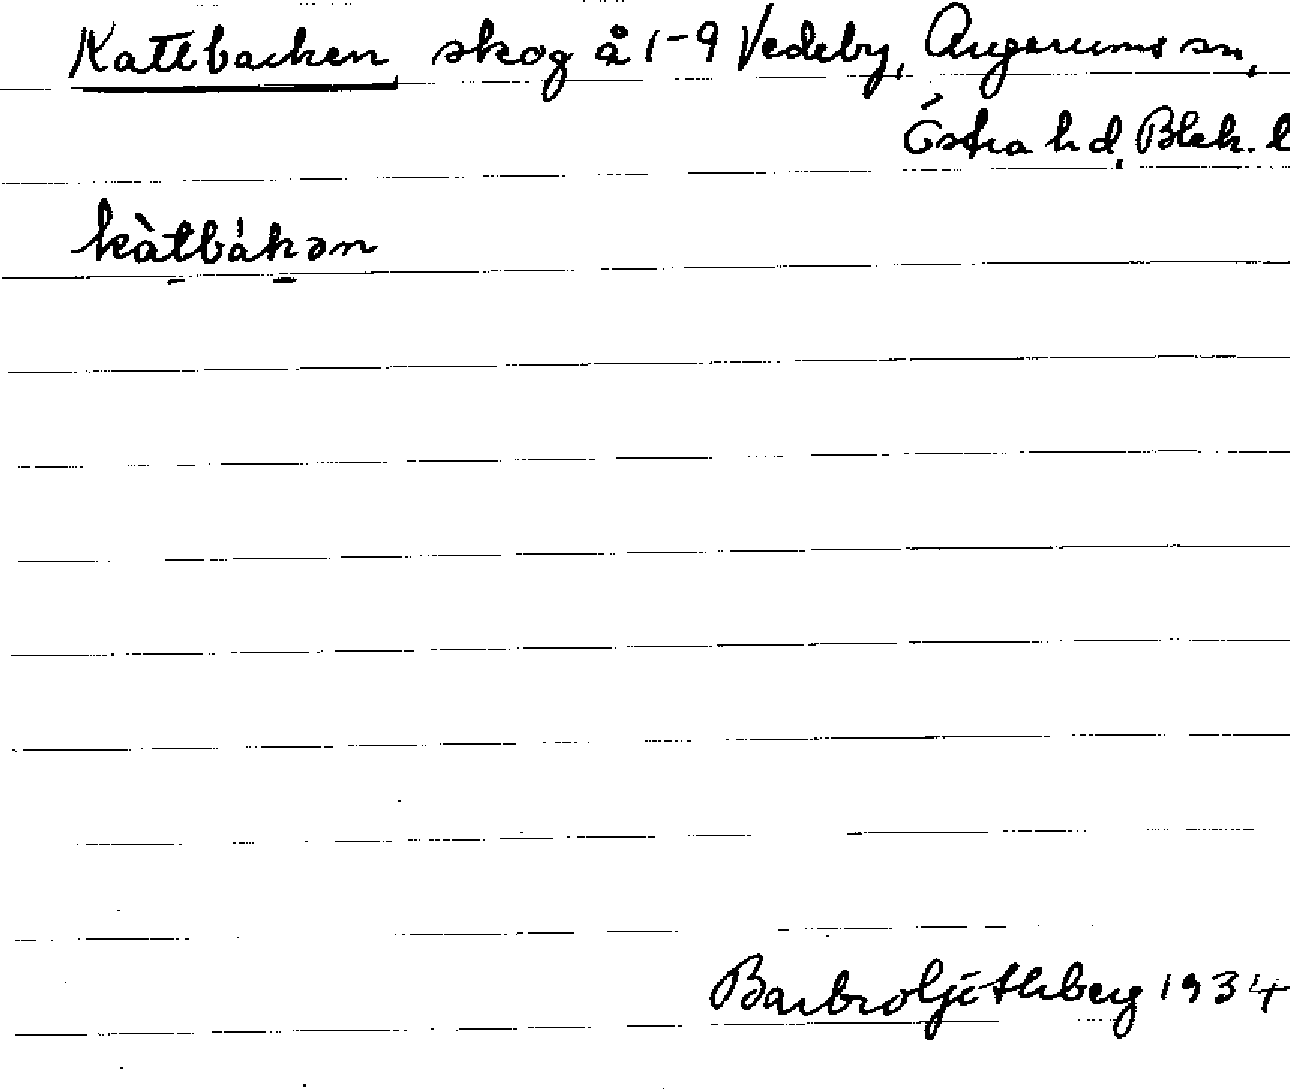 Kattbacken skog å 1-9 Vedeby, Augerums sn,
Östra hd, Blek. l
kàtbákən
Barbro Götlberg 1934